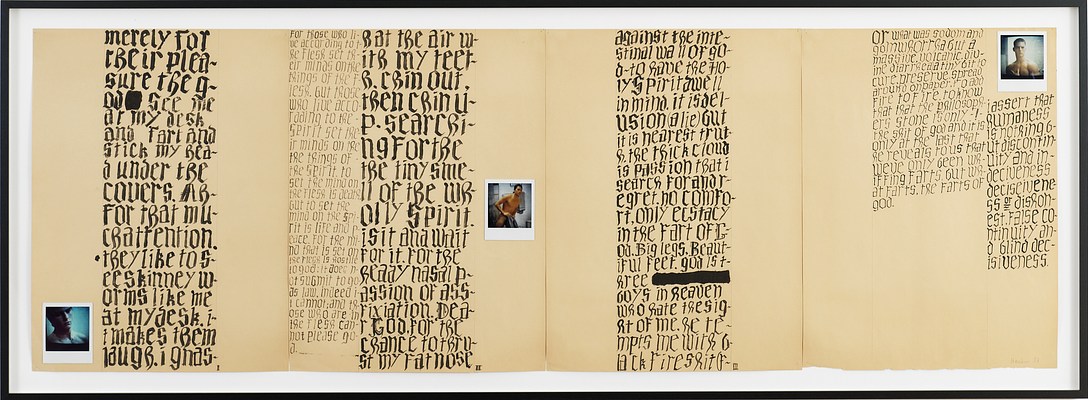 merely for
their plea-
sure the g-
od see me
at my desk
and fart and
stick my hea-
d under the
covers. Ah-
for that mu-
ch attention.
they like to s-
ee skinney w-
orms like me
at my desk. i-
i makes them
laugh. i gnas-
for those who li-
ve according to t-
he flesh set the-
ir minds on the
things of the fl-
esh, but those
who live acco-
rding to the
spirit set the-
ir minds on th-
the things of
the spirit. to
set the mind on
mind on the Spi-
rit is life and p-
eace. for the mi-
nd that is set on
the flesh is hostile
to god: it does n-
ot submit to go-
ds law, indeed i-
t cannot; and th-
ose who are in
the flesh can
not please go-
d.
h at the air w-
ith my feet
h. chin out.
then chin u-
p. searchi-
ng for the
the tiny sme-
ll of the wh-
olly Spirit.
i sit and wait
for it. for the
heady nasal p-
assion of ass-
fixiation. Dea-
r God. for the
chance to thru-
st my fat nose
against the inte-
stinal wall of go-
d-to have the ho-
ly Spirit dwell
in mind. it is del-
usion (a lie) but
it is nearest trut-
h. the thick cloud
is passion that i
search for and r-
egret. no comfo-
rt. only ecstacy
in the fart of G-
od. Big legs. Beaut-
iful feet. god is t-
hree
boys in heaven
who hate the sig-
ht of me. he te-
mpts me with b-
lack fire shit f-
or what was sodom and
gomorrha but a
massive, volcanic, div-
ine diarrhea tiny bit to
fire preserve spread
around on paper, to add
fire to fire to know
that the philosoph-
ers stone is only
the shit of god and it is
only at the last that
he reveals to us that
we've only been wr-
iting farts, but wh-
at farts. the farts of
god.
i assert that
humaness
is nothing b-
ut discontin-
uity and in-
deciveness
deciseivene-
ss or dishon-
est. false co-
ntinuity an-
d blind dec-
isiveness.